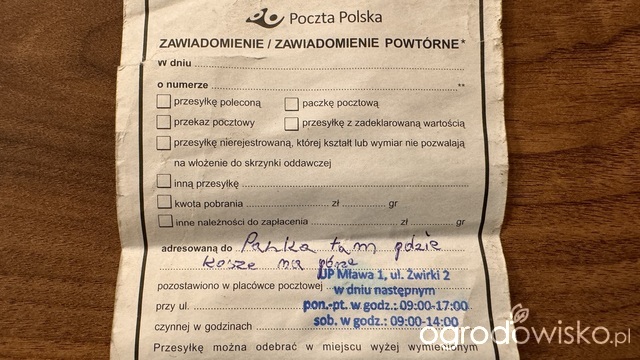 Poczta Polska
ZAWIADOMIENIE / ZAWIADOMIENIE POWTÓRNE*
w dniu
o numerze **
przesyłkę poleconą paczkę pocztową
przekaz pocztowy przesyłkę z zadeklarowaną wartością
przesyłkę nierejestrowaną, której kształt lub wymiar nie pozwalają
na włożenie do skrzynki oddawczej
inną przesyłkę
kwota pobrania zł gr
inne należności do zapłacenia zł gr
adresowaną do tam gdzie
kosze na
pozostawiono w placówce pocztowej UP Mława 1, ul. Żwirki 2
w dniu następnym
przy ul. pon.-pt. w godz.: 09:00-17:00
czynnej w godzinach sob. w godz.: 09:00-14:00
Przesyłkę można odebrać w miejscu wyżej wymienionym
ogrodowisko.pl